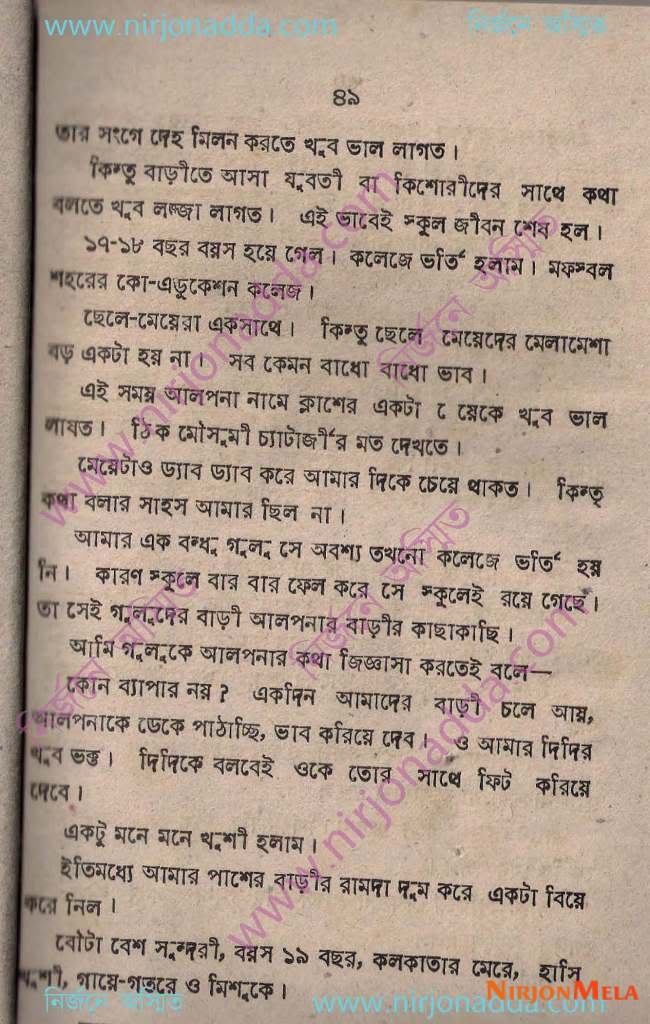 www.nirjonadda.com নির্জনে অস্মিত
৪৯
তার সংগে দেহ মিলন করতে খুব ভাল লাগত।
কিন্তু বাড়ীতে আসা যুবতী বা কিশোরীদের সাথে কথা
বলতে খুব লজ্জা লাগত। এই ভাবেই স্কুল জীবন শেষ হল।
১৭-১৮ বছর বয়স হয়ে গেল। কলেজে ভর্তি হলাম। মফস্বল
শহরের কো-এডুকেশন কলেজ।
ছেলে-মেয়েরা একসাথে। কিন্তু ছেলে মেয়েদের মেলামেশা
বড় একটা হয় না। সব কেমন বাধো বাধো ভাব।
এই সময় আলপনা নামে ক্লাশের একটা য়েকে খুব ভাল
লাগত। ঠিক মৌসুমী চ্যাটার্জীর মত দেখতে।
মেয়েটাও ড্যাব ড্যাব করে আমার দিকে চেয়ে থাকত। কিন্তু
কথা বলার সাহস আমার ছিল না।
আমার এক বন্ধু গুলু সে অবশ্য তখনো কলেজে ভর্তি হয়
নি। কারণ স্কুলে বার বার ফেল করে সে স্কুলেই রয়ে গেছে।
তা সেই গুলুদের বাড়ী আলপনার বাড়ীর কাছাকাছি।
আমি গুলুকে আলপনার কথা জিজ্ঞাসা করতেই বলে—
কোন ব্যাপার নয়? একদিন আমাদের বাড়ী চলে আয়,
আলপনাকে ডেকে পাঠাচ্ছি, ভাব করিয়ে দেব। ও আমার দিদির
খুব ভক্ত। দিদিকে বলবেই ওকে তোর সাথে ফিট করিয়ে
দেবে।
একটু মনে মনে খুশী হলাম।
ইতিমধ্যে আমার পাশের বাড়ীর রামদা দুম করে একটা বিয়ে
করে নিল।
বৌটা বেশ সুন্দরী, বয়স ১৯ বছর, কলকাতার মেয়ে, হাসি
খুশী, গায়ে-গতরে ও মিশুকে।
নির্জনে অস্মিত www.nirjonadda.com
NIRJONMELA